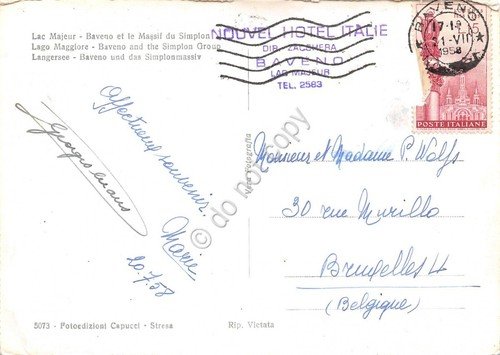 Lac Majeur - Baveno et le Massif du Simplon
Lago Maggiore - Baveno and the Simplon Group
Langersee - Baveno und das Simplonmassiv
NOUVEL HOTEL ITALIE
DIR. ZACCHERA
BAVENO
LAC MAJEUR
TEL. 2583
BAVENO
17-18
1-VII
1958
POSTE ITALIANE
Affectueux souvenir.
Marie
20.7.58
Monsieur et Madame P. Wolfs
30 rue Murillo
Bruxelles 4
(Belgique)
Vera Fotografia
© do not copy
5073 - Fotoedizioni Capucci - Stresa
Rip. Vietata